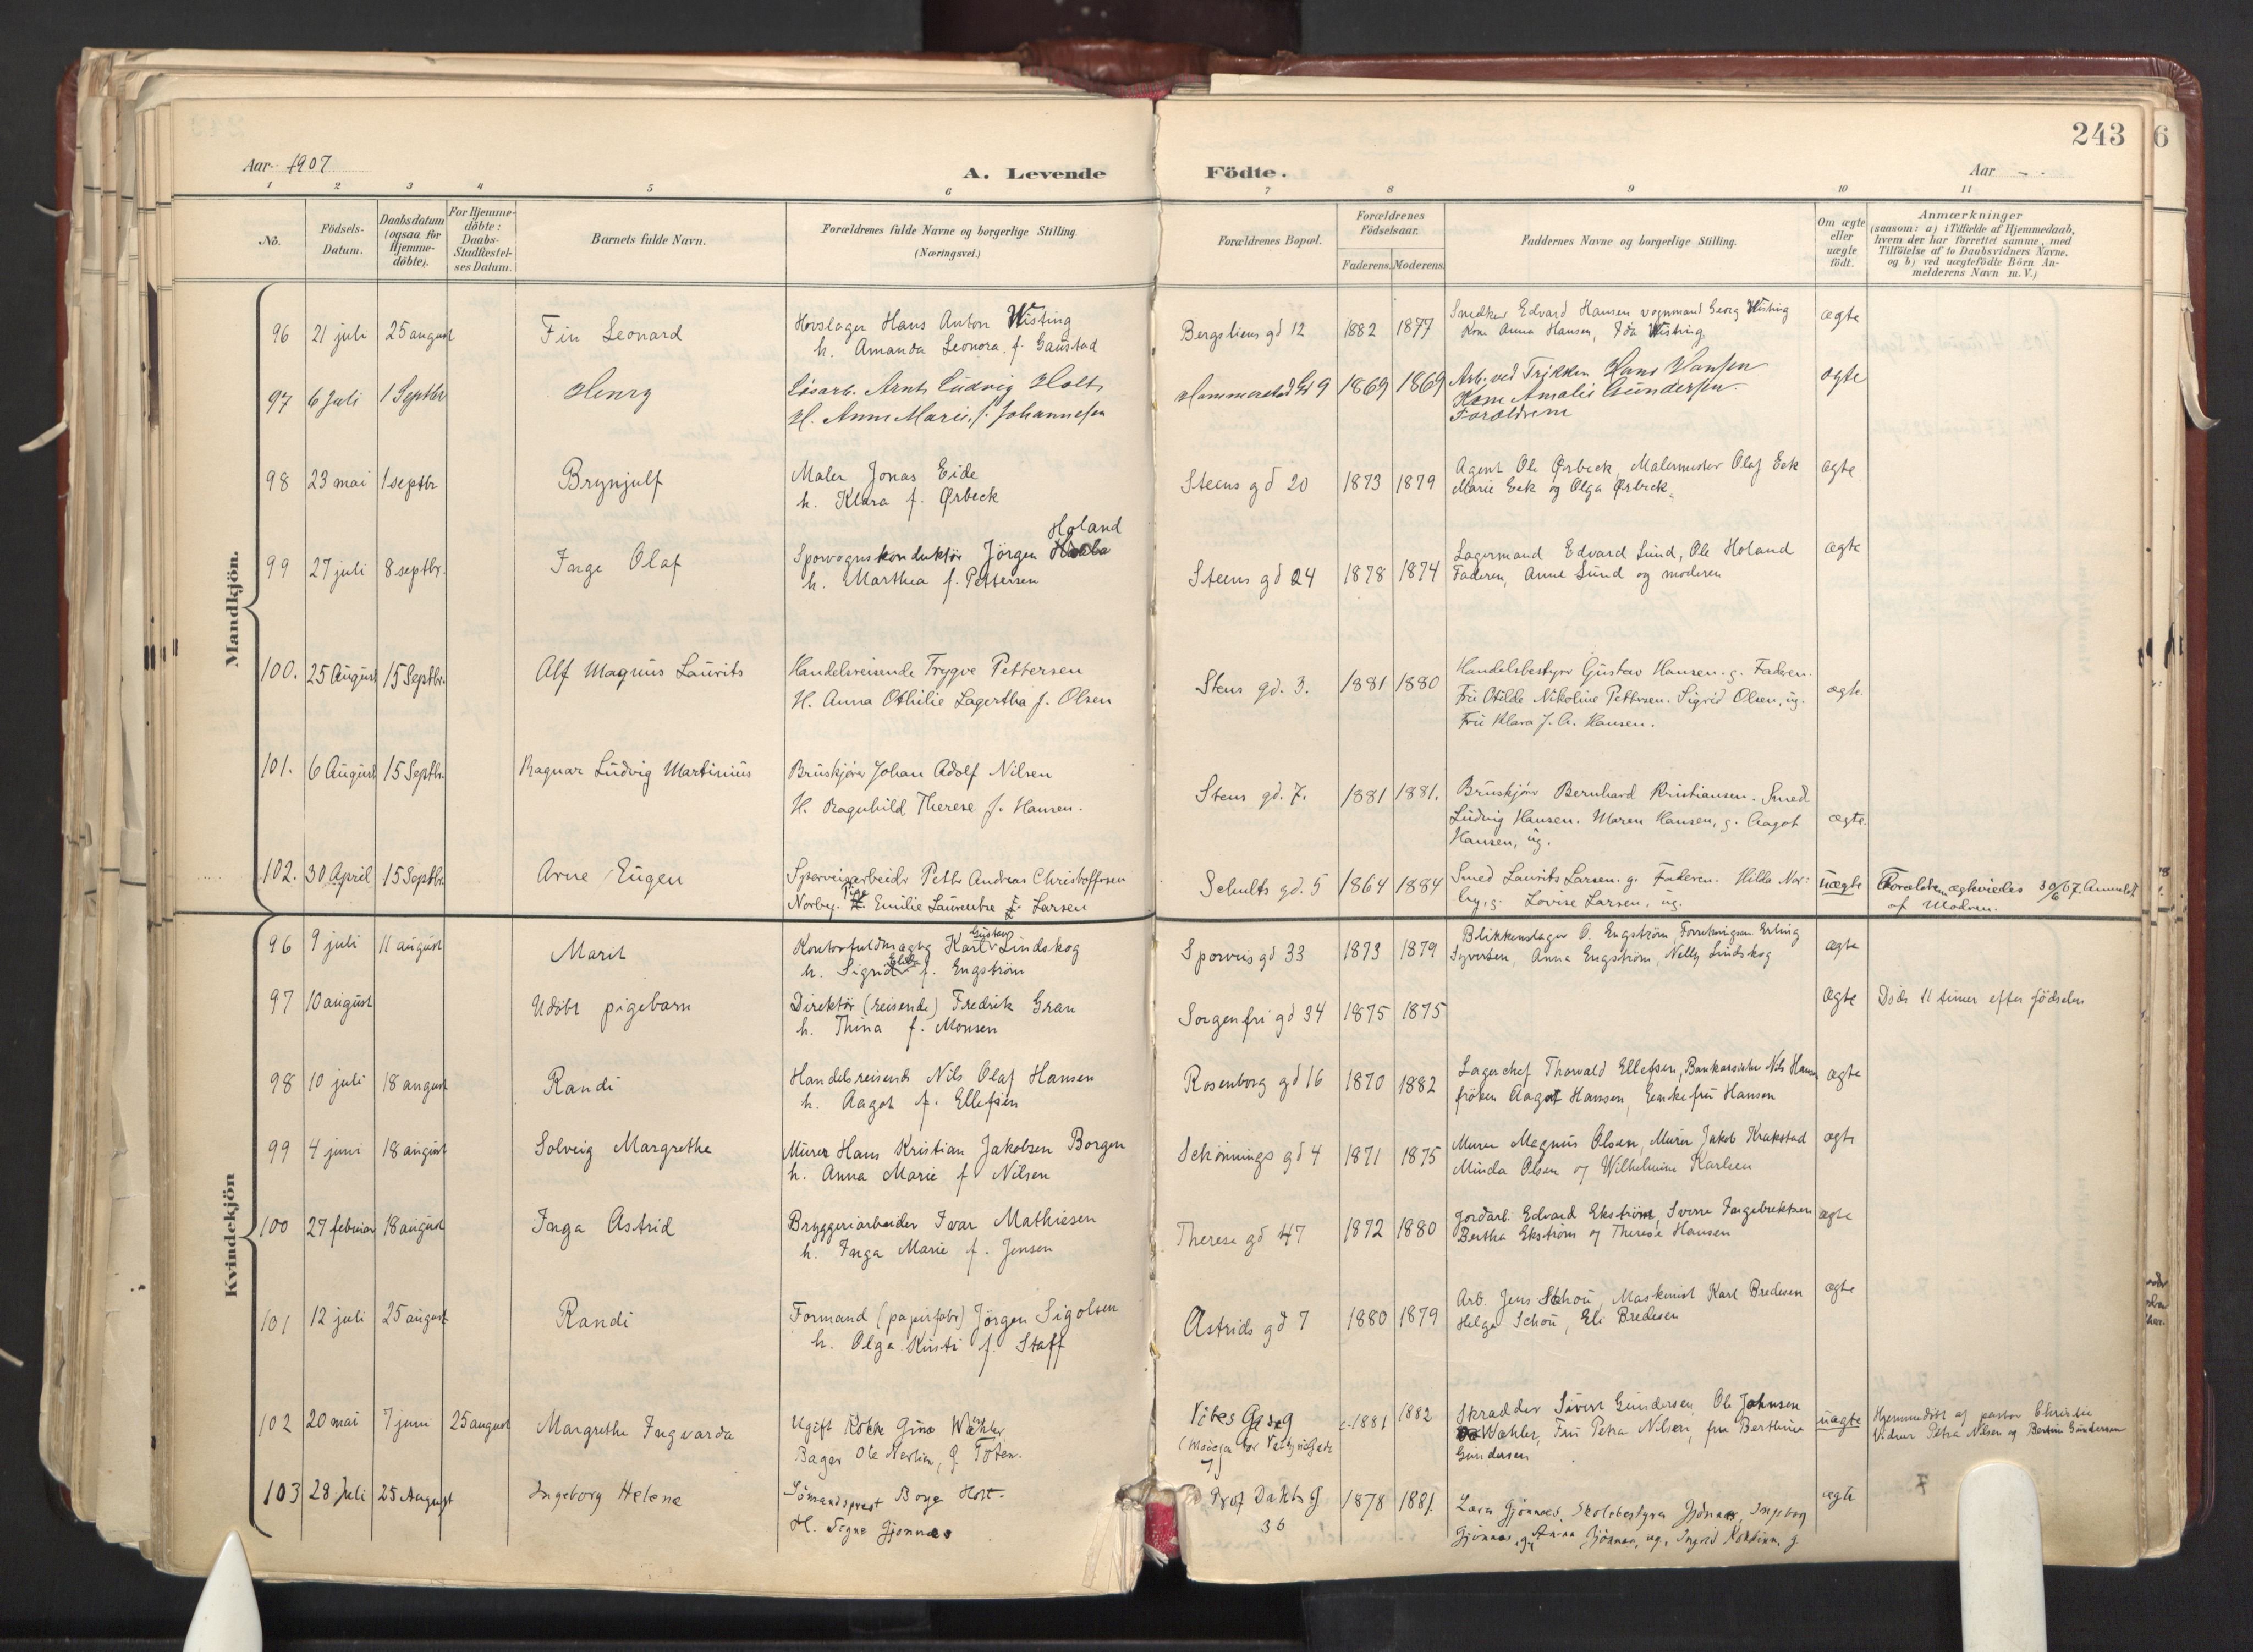 243
6
Aar 1907
A. Levende
Födte.
Aar - .
1 2 3 4 5 6 7 8 9 10 11
No.
Födsels-
Datum.
Daabsdatum
(ogsaa for
Hjemme-
döbte).
For Hjemme-
döbte:
Daabs-
Stadfæstel-
ses Datum.
Barnets fulde Navn.
Forældrenes fulde Navne og borgerlige Stilling.
(Næringsvei.)
Forældrenes Bopæl.
Forældrenes
Födselsaar.
Faderens. Moderens.
Faddernes Navne og borgerlige Stilling.
Om ægte
eller
uægte
födt.
Anmærkninger
(saasom: a) i Tilfælde af Hjemmedaab,
hvem der har forrettet samme, med
Tilföielse af to Daabsvidners Navne,
og b) ved uægtefödte Börn An-
melderens Navn m. V.)
Mandkjön.
96 21 juli 25 august Fin Leonard
Hovslager Hans Anton Wisting
h. Amanda Leonora f. Gaustad
Bergsliens gd 12 1882 1877
Smedker Edvard Hansen vognmand Georg Wisting
Kone Anna Hansen, Ida Wisting
ægte
97 6 Juli 1 Septbr Henry
Løsarb. Arnt Ludvig Holt
H. Anne Marie, f. Johannesen
Hammerstad Gd 9 1869 1869
Arb. ved Trikken Hans Hansen
Kone Amalie Gundersen
Forældrene
ægte
98 23 mai 1 septbr Brynjulf
Maler Jonas Eide
h. Klara f. Ørbeck
Steens gd 20 1873 1879
Agent Ole Ørbeck, Malermester Olaf Eek
Marie Eek og Olga Ørbeck
ægte
99 27 juli 8 septbr. Inge Olaf
Holand
Sporvognskonduktør Jörgen
h. Marthea f. Pettersen
Steens gd 24 1878 1874
Lagermand Edvard Lund, Ole Holand
Faderen, Anne Lund og moderen
ægte
100. 25 August 15 Septbr. Alf Magnus Laurits
Handelsreisende Trygve Pettersen
H. Anna Othilie Lagertha f. Olsen
Stens gd. 3. 1881 1880
Handelsbestyrer Gustav Hansen. g. Faderen.
Fru Otilde Nikoline Pettersen. Sigrid Olsen, ug.
Fru Klara J. A. Hansen.
ægte.
101. 6 August 15 Septbr. Ragnar Ludvig Martinius
Bruskjører Johan Adolf Nilsen
H. Ragnhild Therese f. Hansen.
Stens gd. 7. 1881 1881.
Bruskjører Bernhard Kristiansen. Smed
Ludvig Hansen. Maren Hansen, g. Aagot
Hansen, ug.
ægte.
102. 30 April 15 Septbr. Arne Eugen
Sporveisarbeider Petter Andreas Christoffersen
Norby. Emilie Laurentze Larsen
Schults gd. 5 1864 1884
Smed Laurits Larsen. g. Faderen. Hilda Nor-
by, g. Lovise Larsen, ug.
uægte
Forældrene ægteviedes 30/6 07. Anmeldt
af Moderen.
Kvindekjön
96 9 juli 11 august Marit
Kontorfuldmægtig Karl Gustav Lindskog
h. Sigrid f. Engström
Sporveis gd 33 1873 1879
Blikkenslager O. Engström, Forretningsm. Erling
Syversen, Anna Engström, Nelly Lindskog
ægte
97 10 august Udöbt pigebarn
Direktör (reisende) Fredrik Gran
h. Thina f. Monsen
Sorgenfri gd 34 1875 1875
ægte Död 11 timer efter födselen
98 10 juli 18 august Randi
Handelsreisende Nils Olaf Hansen
h. Aagot f. Ellefsen
Rosenborg gd 16 1870 1882
Lagerchef Thorvald Ellefsen, Bankassistent Nils Hansen
fröken Aagot Hansen, Enkefru Hansen
ægte
99 4 juni 18 august Solveig Margrethe
Murer Hans Kristian Jakobsen Borgen
h. Anna Marie f Nilsen
Schønnings gd 4 1871 1875
Murer Magnus Olsen, Murer Jakob Krakstad
Minda Olsen og Wilhelmine Karlsen
ægte
100 27 februar 18 august Inga Astrid
Bryggeriarbeider Ivar Mathiesen
h. Inga Marie f. Jensen
Therese gd 47 1872 1880
Jordarb. Edvard Ekström, Sverre Ingebrektsen
Bertha Ekström og Therese Hansen
ægte
101 12 juli 25 august Randi
Formand (papirfabr) Jörgen Sigolsen
h. Olga Kirsti f. Staff
Astrids gd 7 1880 1879
Arb. Jens Schou, Maskinist Karl Bredesen
Helga Schou, Eli Bredesen
ægte
102 20 mai 7 juni 25 august Margrethe Ingvarda
Ugift Kokke Gina Wæhler
Bager Ole Nerlien, Ø. Toten.
Vibes Gd 1881 1882
Skrædder Sivert Gundersen, Ole Johnsen
Wæhler, Fru Petra Nilsen, fru Berthine
Gundersen
uægte
Hjemmedöbt af pastor Christie
Vidner Petra Nilsen og Bertine Gundersen
103 28 Juli 25 August Ingeborg Helene
Sömandsprest Børge Host
H. Signe Gjønnæs
Prof Dahls G 1878 1881.
36
Lars Gjønnæs, Skolebestyrer Gjönnæs, Ingeborg
Gjönnæs, g, Anna Gjönnæs, ug.,
ægte